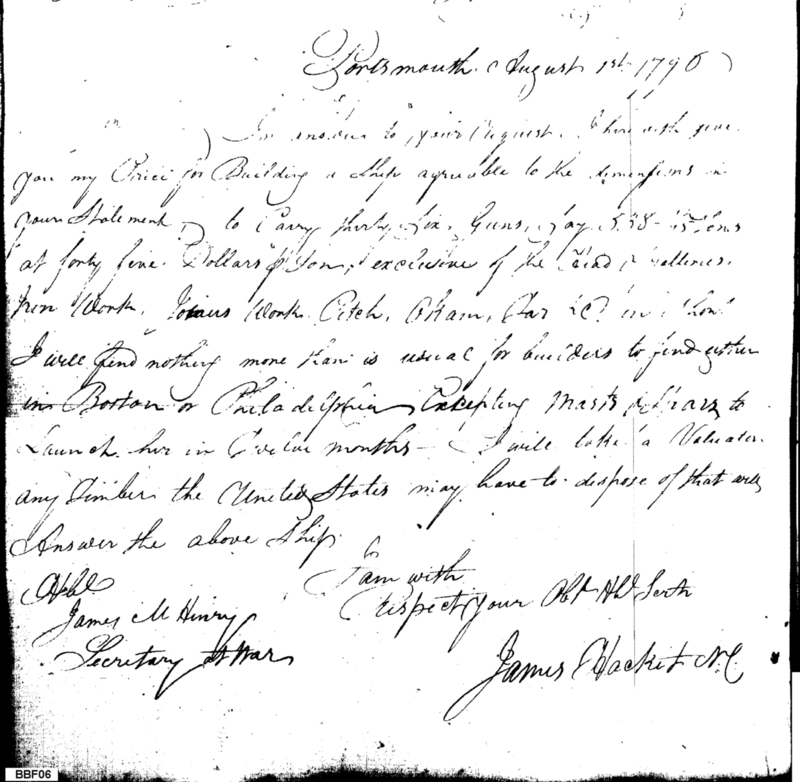 Portsmouth August 1st 1796
Sir
In answer to your Request, I herewith give
you my Price for Building a Ship agreeable to the dimensions in
your Statement, to Carry thirty Six Guns, Say Tons
at forty five Dollars Ton, exclusive of the Head & Galleries,
Iron Work, Joiners Work Pitch, Okam, Tar &C! in Short
I will find nothing more than is usual for builders to find either
in Boston or Philadelphia, Excepting Masts & Sparz to
Launch her in Twelve months — I will take a Valuation
any Timber the United States may have to dispose of that will
Answer the above Ship
I am with
Respect your Obt Hbl Servt
James Hacket N.C.
Hble
James McHinry
Secretary at War
BBF06